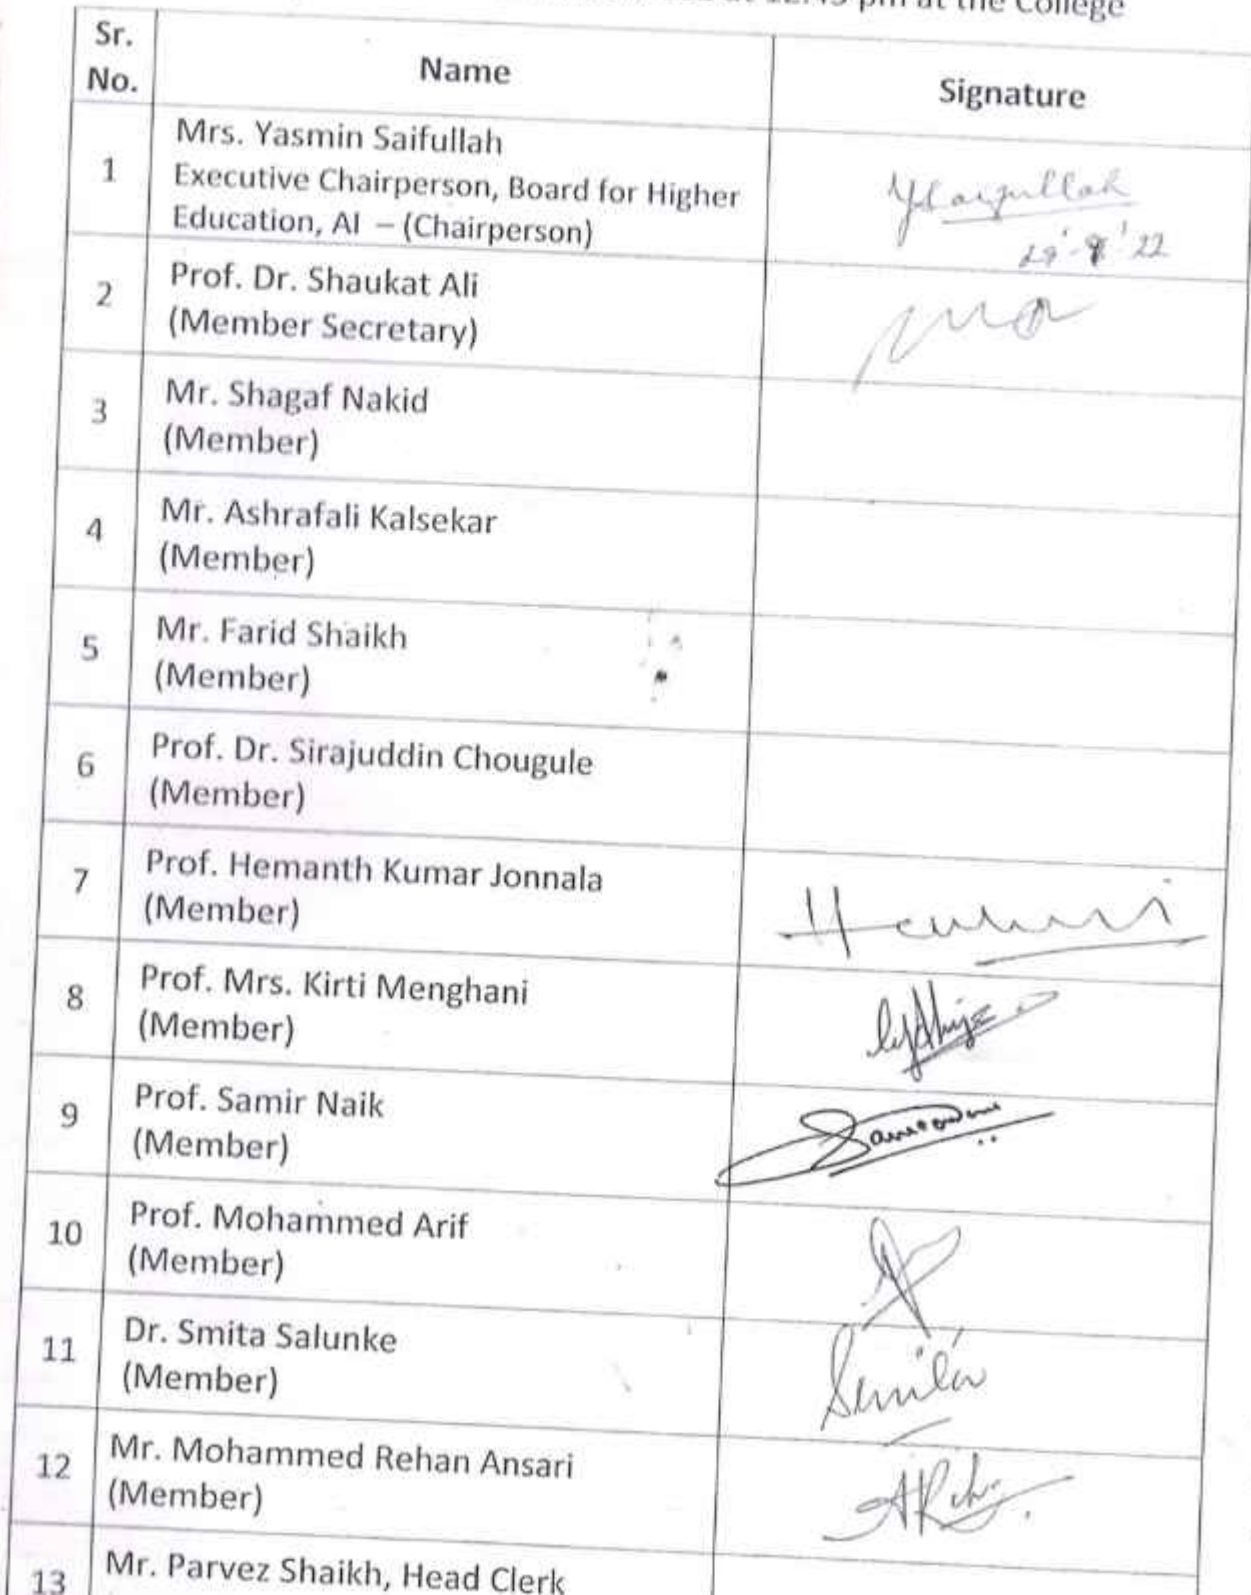 at 12:45 pm at the College
Sr. No.
Name
Signature
1
Mrs. Yasmin Saifullah
Executive Chairperson, Board for Higher
Education, AI – (Chairperson)
YSaifullah
29-8'22
2
Prof. Dr. Shaukat Ali
(Member Secretary)
3
Mr. Shagaf Nakid
(Member)
4
Mr. Ashrafali Kalsekar
(Member)
5
Mr. Farid Shaikh
(Member)
6
Prof. Dr. Sirajuddin Chougule
(Member)
7
Prof. Hemanth Kumar Jonnala
(Member)
8
Prof. Mrs. Kirti Menghani
(Member)
9
Prof. Samir Naik
(Member)
10
Prof. Mohammed Arif
(Member)
11
Dr. Smita Salunke
(Member)
Smita
12
Mr. Mohammed Rehan Ansari
(Member)
13
Mr. Parvez Shaikh, Head Clerk